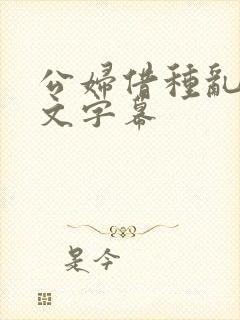 公婦借種亂
文字幕
是今